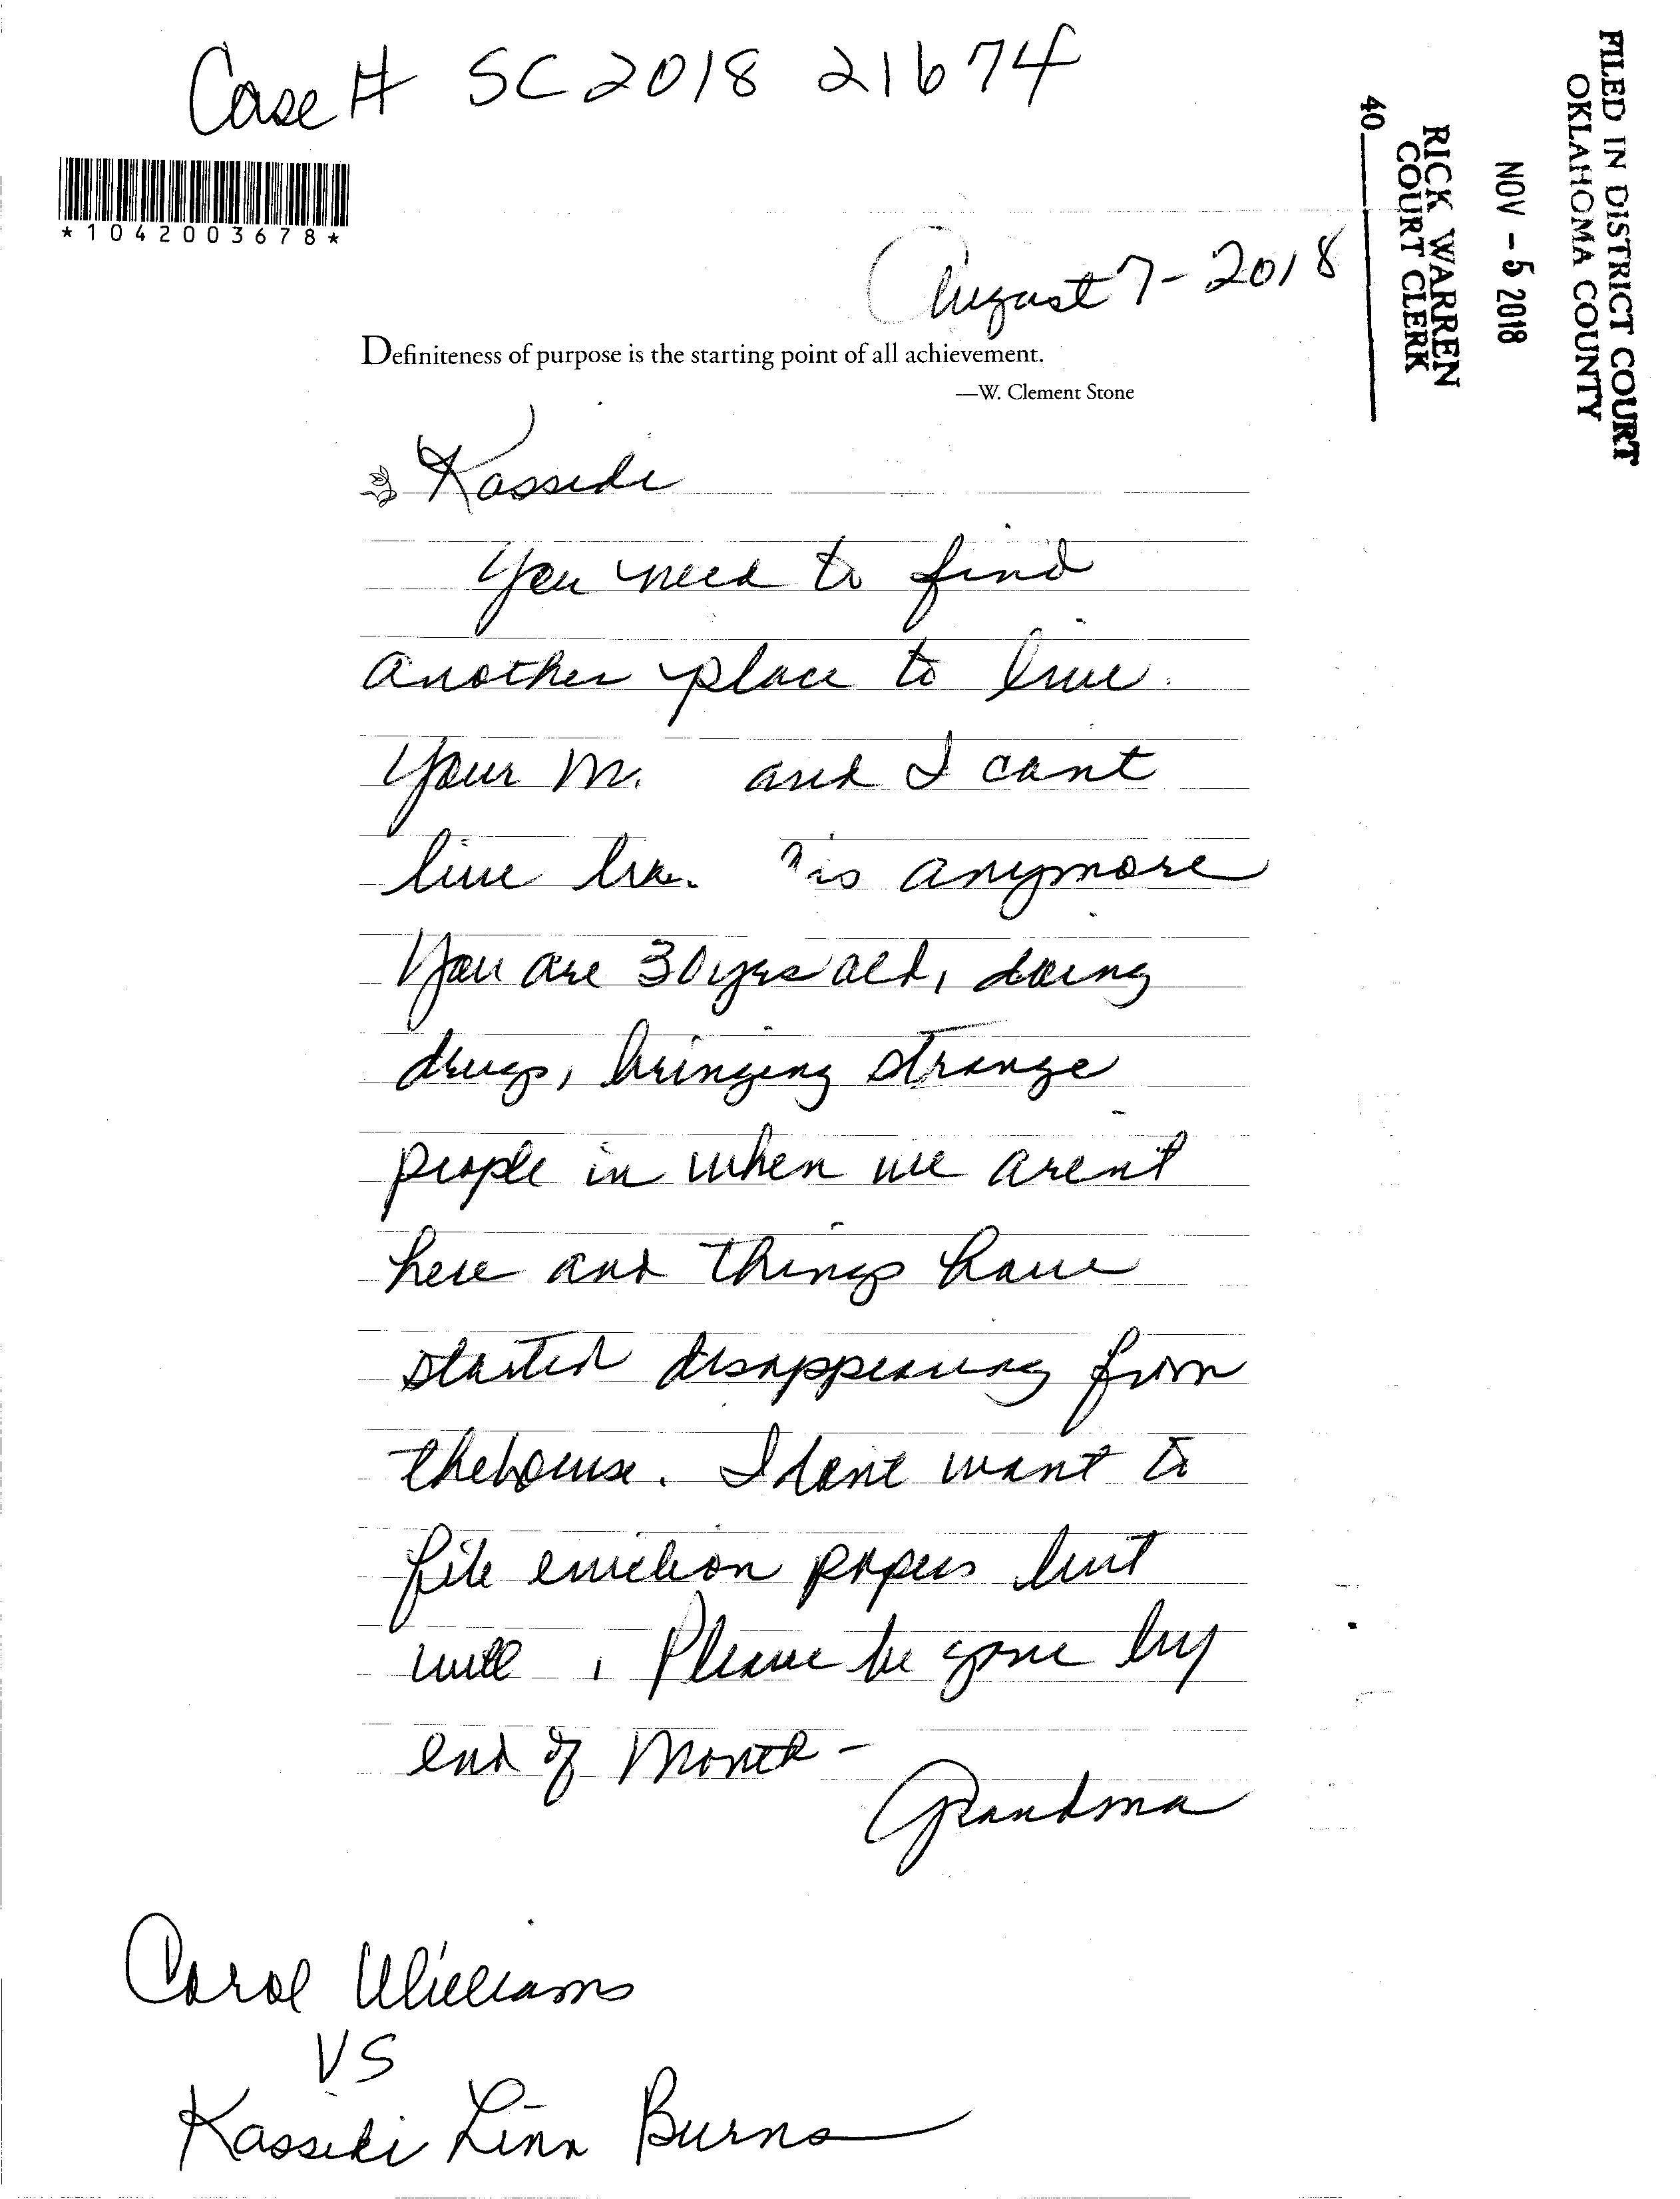 Case # SC 2018 21674
*1042003678*
FILED IN DISTRICT COURT
OKLAHOMA COUNTY
NOV - 5 2018
RICK WARREN
COURT CLERK
40
August 7 - 2018
Definiteness of purpose is the starting point of all achievement.
—W. Clement Stone
Kassidi
You need to find
another place to live.
Your M. and I cant
live anymore
You are 30 yrs old, doing
drugs, bringing strange
people in when we arent
here and things have
started disappearing from
the house. I dont want to
file eviction papers but
will , Please be gone by
end of Month -
Grandma
Carol Williams
VS
Kassidi Linn Burns